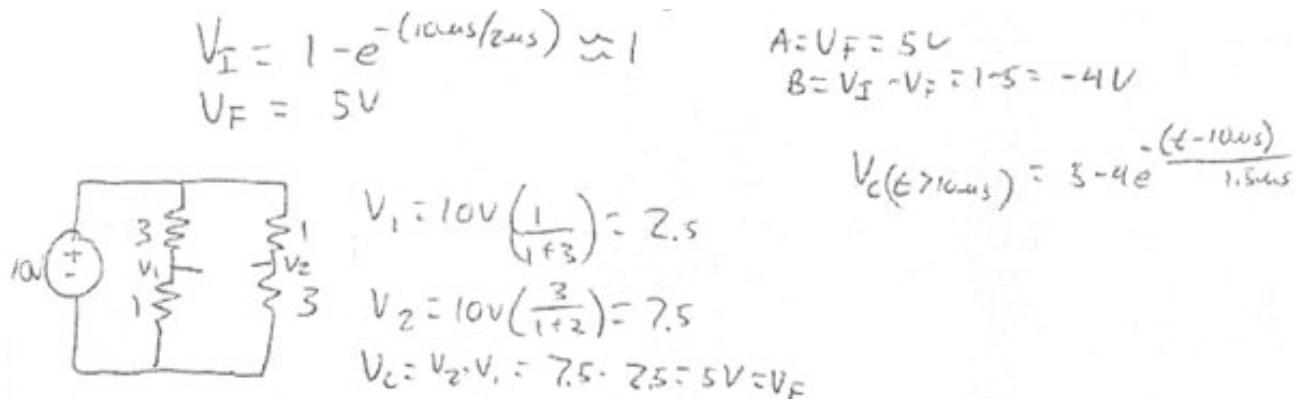 V_I = 1 - e^{-(10us/2us)} ≈ 1
V_F = 5V
A = V_F = 5V
B = V_I - V_F = 1-5 = -4V
V_C(t>10us) = 5-4e^{-(t-10us)/1.5us}
10V
+
-
3
V_1
1
1
V_2
3
V_1 = 10V(1/(1+3)) = 2.5
V_2 = 10V(3/(1+3)) = 7.5
V_C = V_2 - V_1 = 7.5 - 2.5 = 5V = V_F